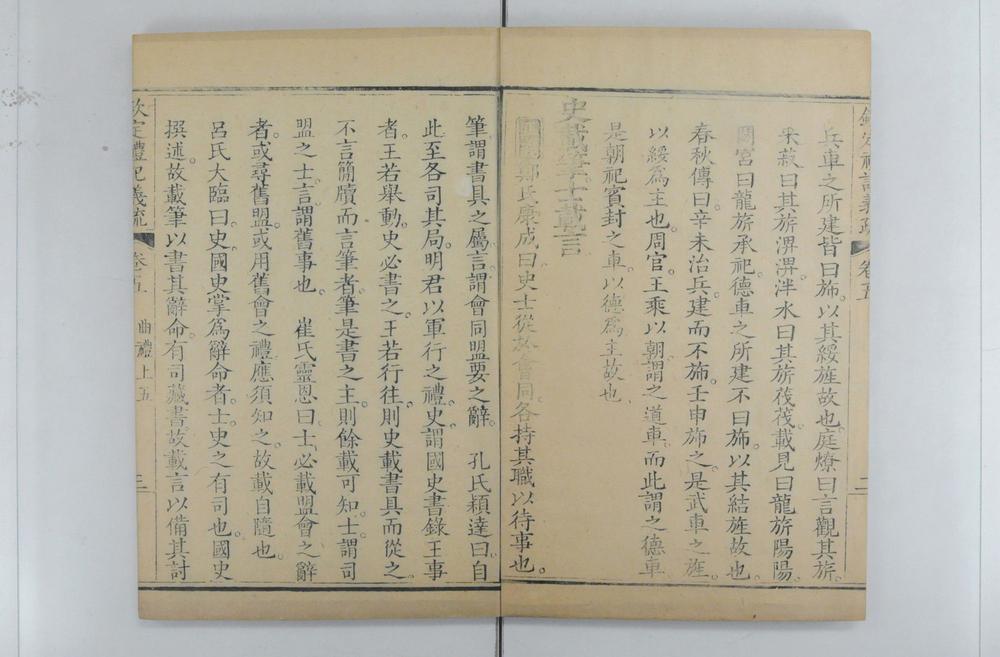 欽定禮記義疏 卷五 二
兵車之所建皆曰斾。以其綏旌故也。庭燎曰言觀其旂。
采菽曰其旂淠淠。泮水曰其旂茷茷。載見曰龍旂陽陽。
閟宮曰龍旂承祀。德車之所建不曰斾。以其結旌故也。
春秋傳曰。辛未治兵。建而不斾。壬申斾之。是武車之旌。
以綏為主也。周官。王乘以朝謂之道車。而此謂之德車。
是朝祀賓封之車。以德為主故也。
史載筆士載言
鄭氏康成曰。史士從於會同。各持其職以待事也。
筆。謂書具之屬。言。謂會同盟要之辭。 孔氏穎達曰。自
此至各司其局。明君以軍行之禮。史。謂國史書錄王事
者。王若舉動。史必書之。王若行往。則史載書具而從之。
不言簡牘而言筆者。筆是書之主。則餘載可知。士。謂司
盟之士。言。謂舊事也。 崔氏靈恩曰。士必載盟會之辭
者。或尋舊盟。或用舊會之禮。應須知之。故載自隨也。
呂氏大臨曰。史。國史。掌爲辭命者。士。史之有司也。國史
撰述。故載筆以書其辭命。有司藏書。故載言以備其討
欽定禮記義疏 卷五 曲禮上五 三